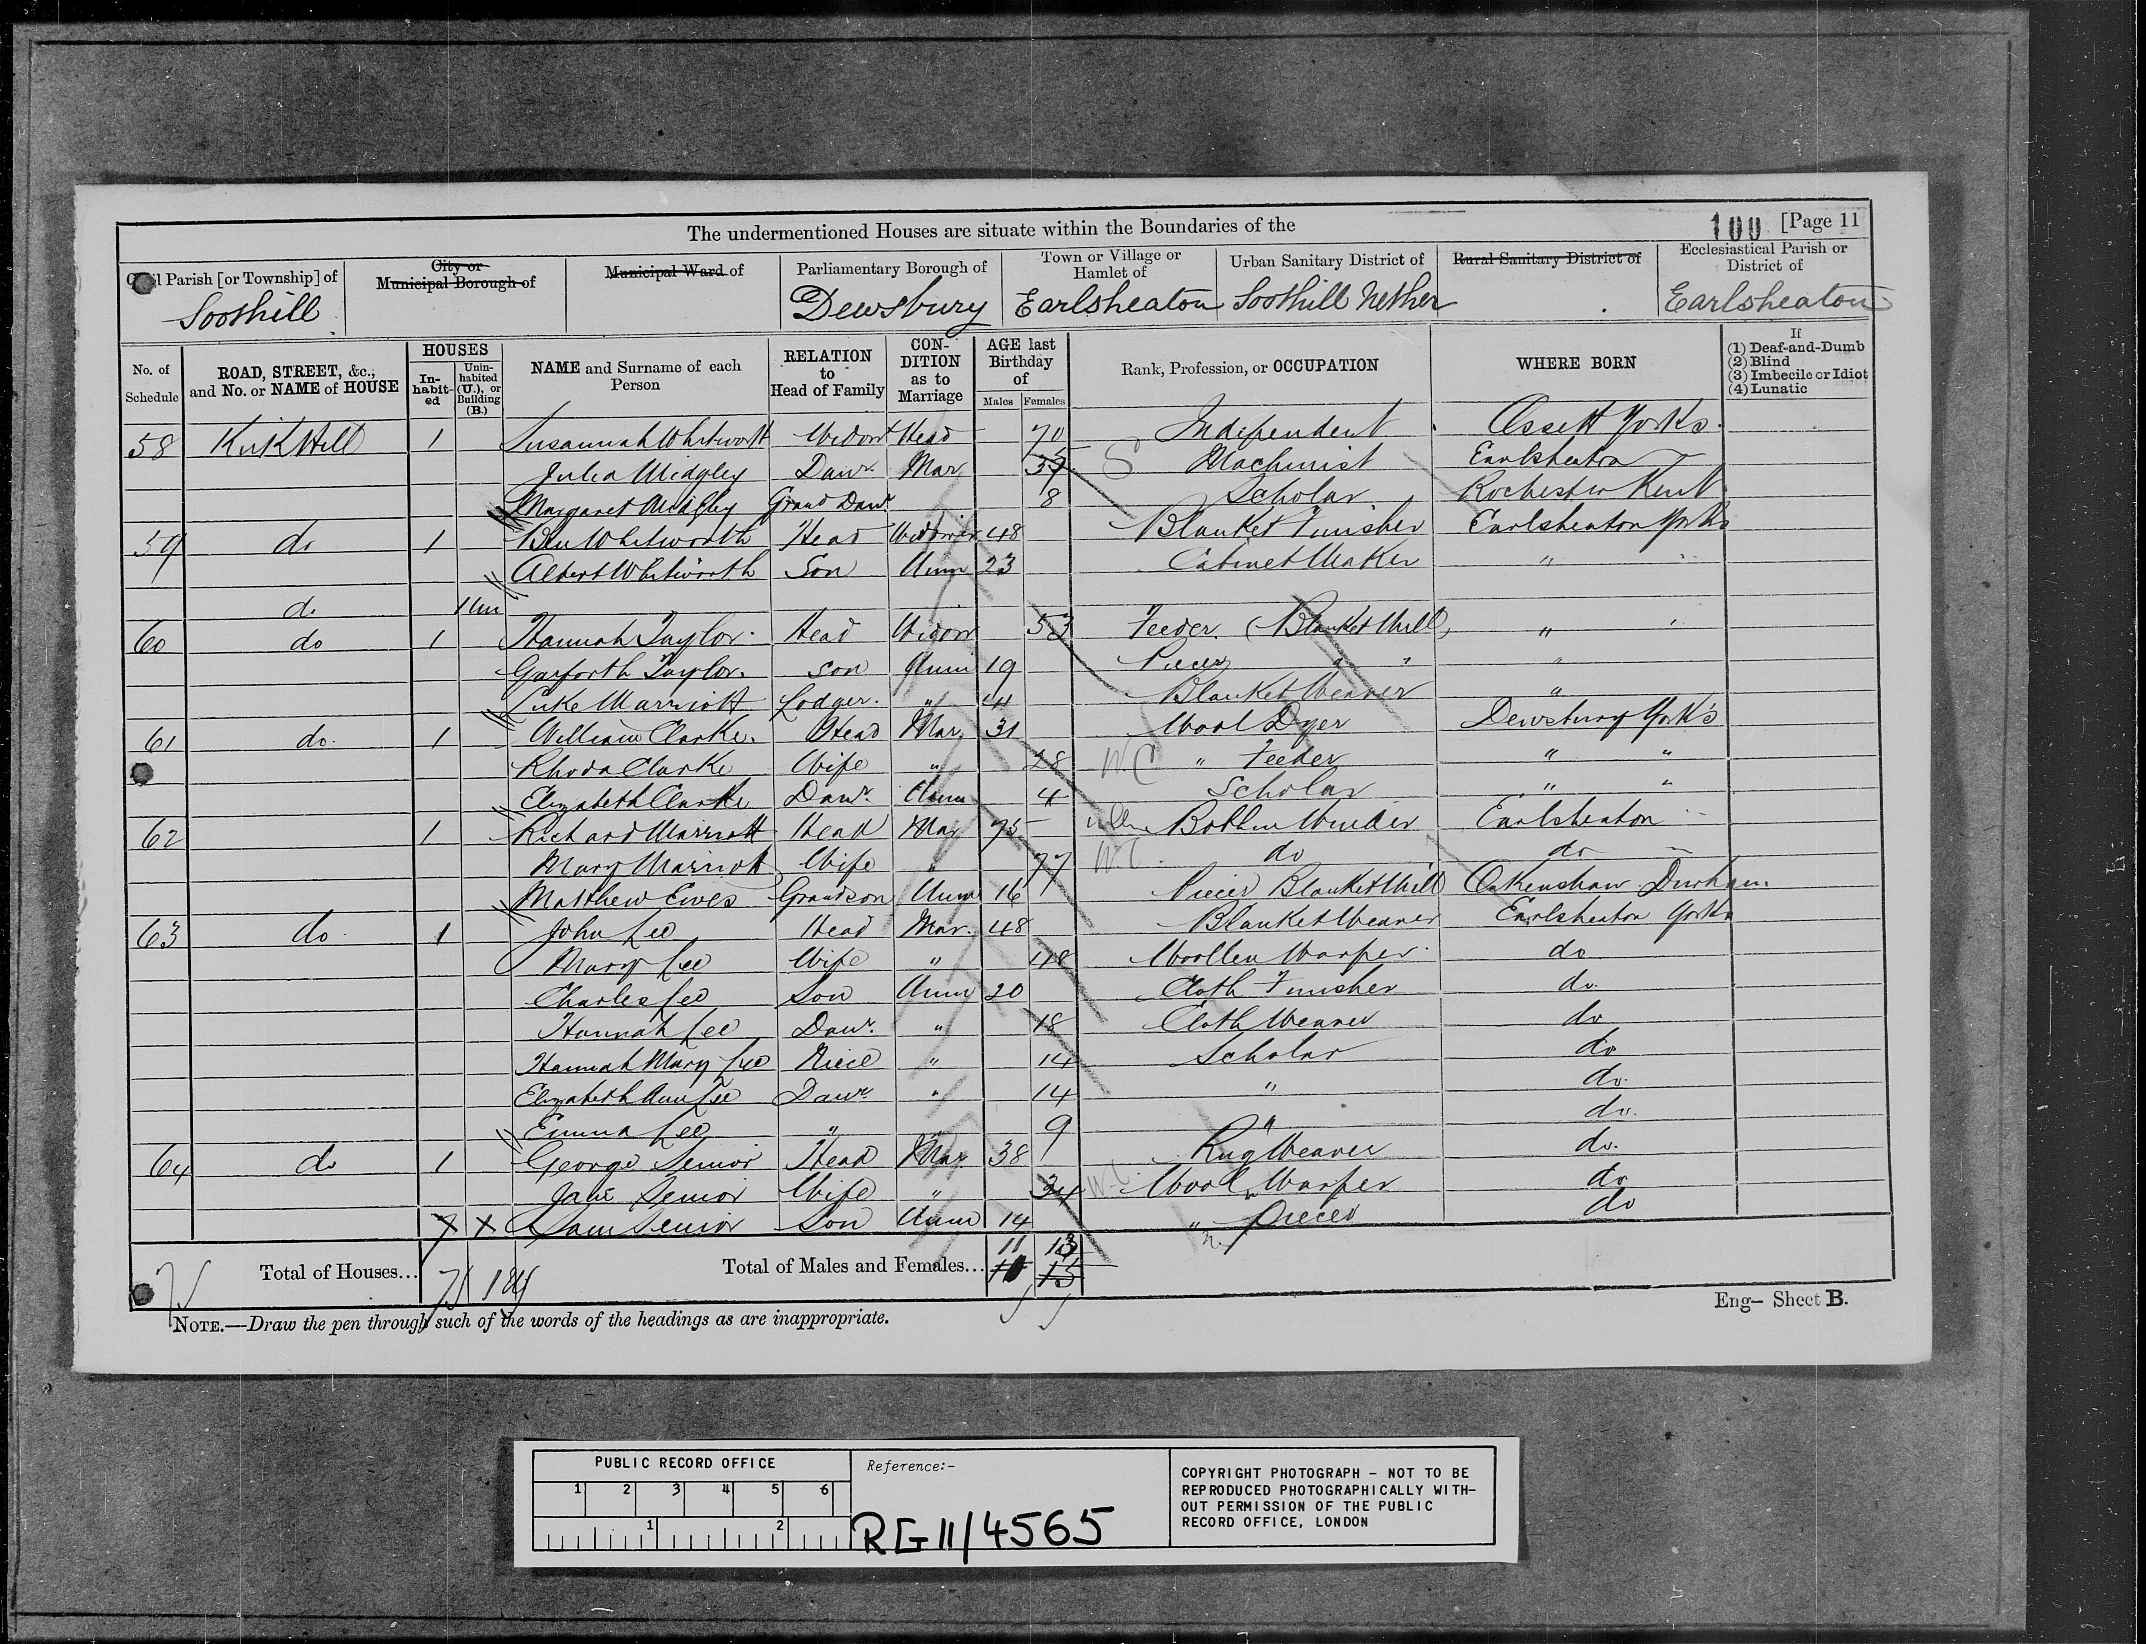 The undermentioned Houses are situate within the Boundaries of the
100 [Page 11
Civil Parish [or Township] of
City or Municipal Borough of
Municipal Ward of
Parliamentary Borough of
Town or Village or Hamlet of
Urban Sanitary District of
Rural Sanitary District of
Ecclesiastical Parish or District of
Soothill Dewsbury Earlsheaton Soothill Nether Earlsheaton
No. of Schedule
ROAD, STREET, &c., and No. or NAME of HOUSE
HOUSES
In-habit-ed
Unin-habited (U.), or Building (B.)
NAME and Surname of each Person
RELATION to Head of Family
CON-DITION as to Marriage
AGE last Birthday of
Males Females
Rank, Profession, or OCCUPATION
WHERE BORN
If
(1) Deaf-and-Dumb
(2) Blind
(3) Imbecile or Idiot
(4) Lunatic
58 Kirk Hill 1 Susannah Whitworth Widow Head 70 Independent Ossett Yorks
Julia Midgley Dawr. Mar Machinist Earlsheaton
Margaret Midgley Grand Dawr. 8 Scholar Rochester Kent
59 do 1 Ben Whitworth Head Widower 48 Blanket Finisher Earlsheaton Yorks
Albert Whitworth Son Unm 23 Cabinet Maker " "
do 1 Un
60 do 1 Hannah Taylor Head Widow 53 Feeder (Blanket Mill) " "
Garforth Taylor Son Unm 19 Piecer " " "
Luke Marriott Lodger " Blanket Weaver "
61 do 1 William Clarke Head Mar 31 Wool Dyer Dewsbury Yorks
Rhoda Clarke Wife " 28 W.C " Feeder " "
Elizabeth Clarke Dawr. Unm 4 Scholar " "
62 1 Richard Marriott Head Mar 75 Bobbin Winder Earlsheaton
Mary Marriott Wife " 77 W.C do do
Matthew Eves Grandson Unm 16 Piecer Blanket Mill Oakenshaw Durham
63 do 1 John Lee Head Mar. 48 Blanket Weaver Earlsheaton Yorks
Mary Lee Wife " 48 Woollen Warper do
Charles Lee Son Unm 20 Cloth Finisher do
Hannah Lee Dawr. " 18 Cloth Weaver do
Hannah Mary Lee Niece " 14 Scholar do
Elizabeth Ann Lee Dawr " 14 " do
Emma Lee " " 9 " do.
64 do 1 George Senior Head Mar 38 Rug Weaver do.
Jane Senior Wife " 34 W.C Wool Warper do
7 x Sam Senior Son Unm 14 " Piecer do
Total of Houses... 7 1 Total of Males and Females... 11 13
10 15
NOTE.—Draw the pen through such of the words of the headings as are inappropriate.
Eng- Sheet B.
PUBLIC RECORD OFFICE
1 2 3 4 5 6
1 2
Reference:-
RG 11/4565
COPYRIGHT PHOTOGRAPH - NOT TO BE
REPRODUCED PHOTOGRAPHICALLY WITH-
OUT PERMISSION OF THE PUBLIC
RECORD OFFICE, LONDON